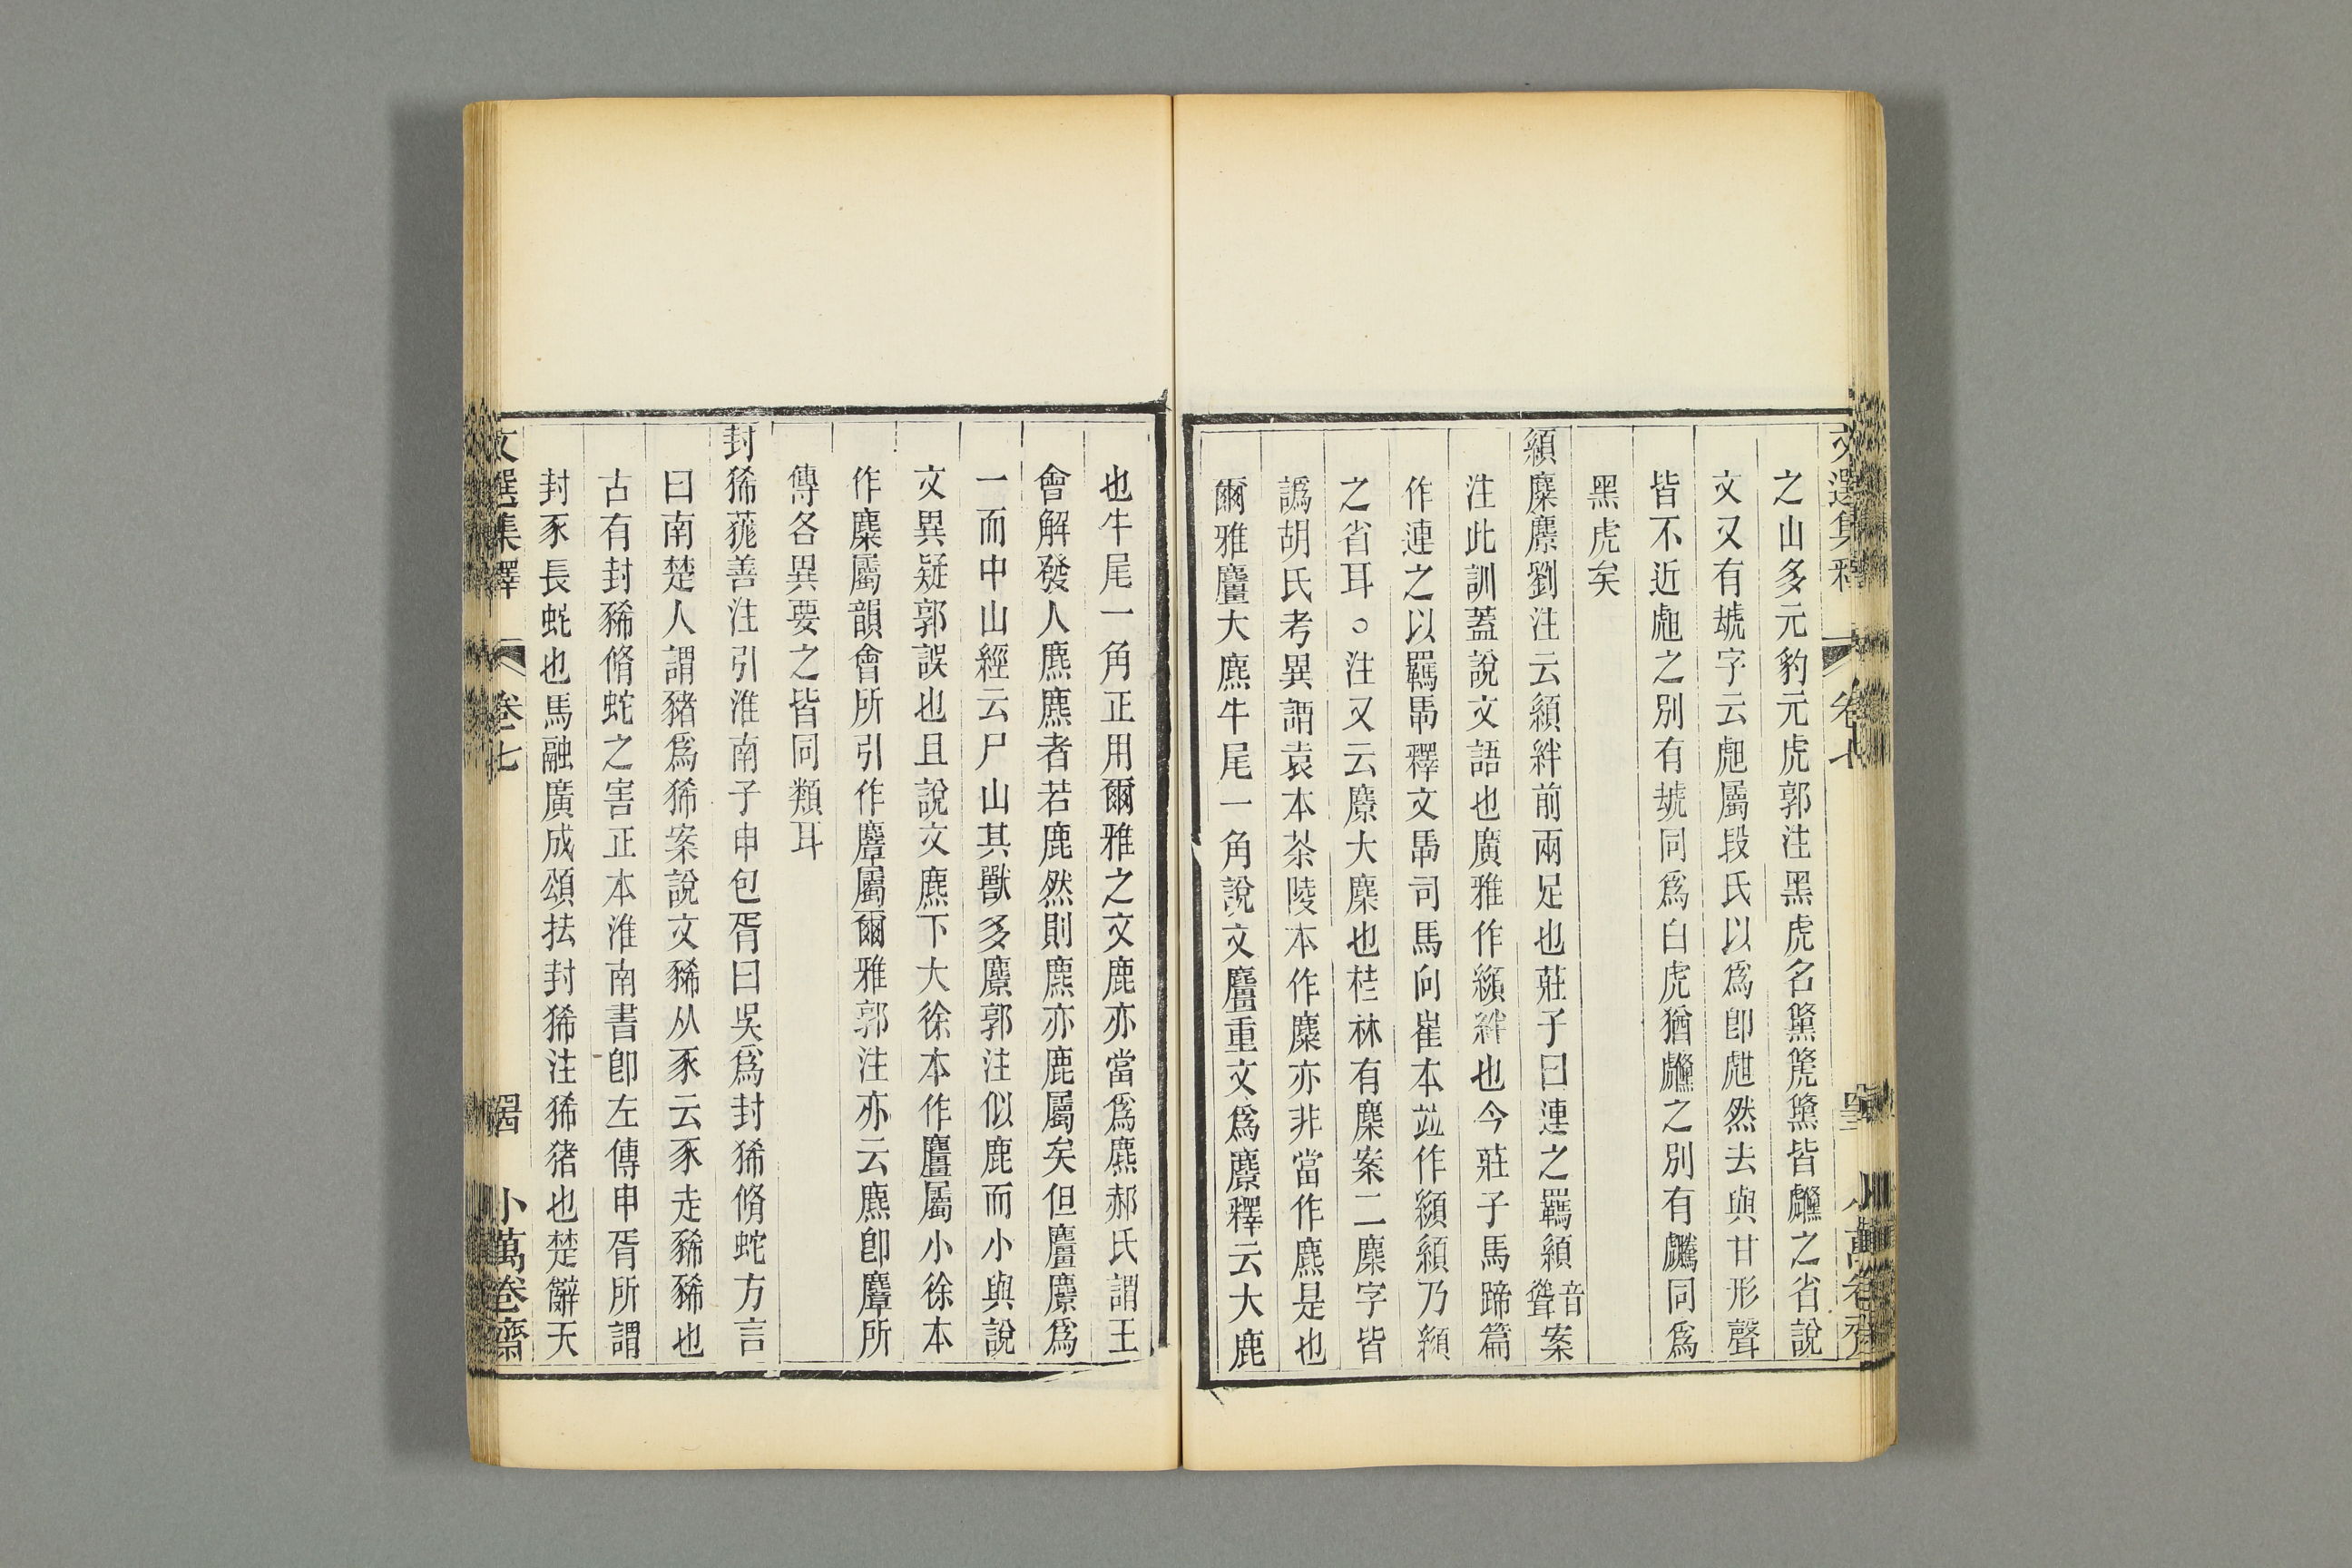 文選集釋 卷七 小萬卷齋
之山多元豹元虎郭注黑虎名黸虪黸皆䖘之省說
文又有虦字云虪屬段氏以爲卽甝然去與甘形聲
皆不近虪之別有虦同爲白虎猶䖘之別有䲢同爲
黑虎矣
纐麋麖劉注云纐絆前兩足也莊子曰連之羈纐音聳案
注此訓蓋說文語也廣雅作纐絆也今莊子馬蹄篇
作連之以羈馽釋文馽司馬向崔本竝作纐纐乃纐
之省耳○注又云麖大麋也桂林有麋案二麋字皆
譌胡氏考異謂袁本茶陵本作麋亦非當作麃是也
爾雅麠大麃牛尾一角說文麠重文爲麖釋云大鹿
也牛尾一角正用爾雅之文鹿亦當爲麃郝氏謂王
會解發人麃麃者若鹿然則麃亦鹿屬矣但麠麖爲
一而中山經云尸山其獸多麖郭注似鹿而小與說
文異疑郭誤也且說文麃下大徐本作麠屬小徐本
作麋屬韻會所引作麞屬爾雅郭注亦云麃卽麞所
傳各異要之皆同類耳
封狶蓷善注引淮南子申包胥曰吳爲封狶脩蛇方言
曰南楚人謂豬爲狶案說文豨从豕云豕走豨豨也
古有封豨脩蛇之害正本淮南書卽左傳申胥所謂
封豕長蛇也馬融廣成頌抾封狶注狶猪也楚辭天
文選集釋 卷七 小萬卷齋